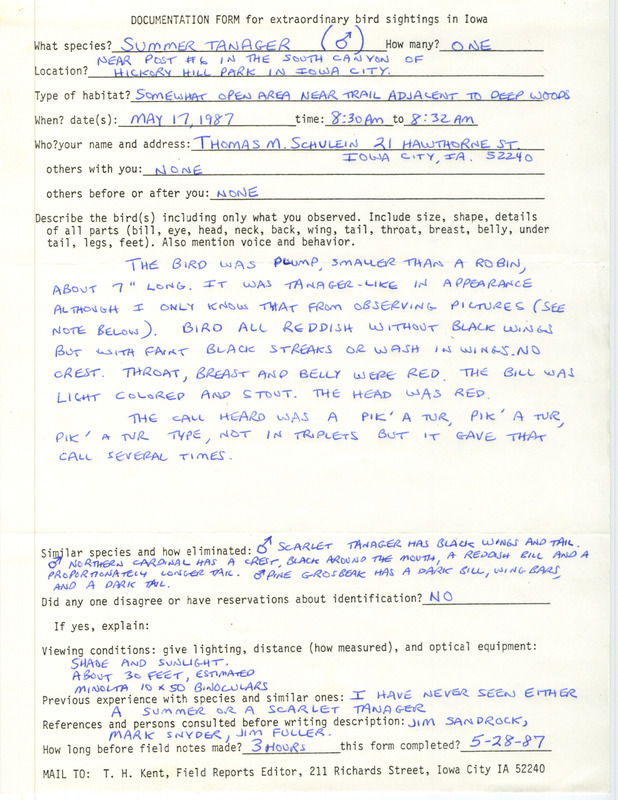 DOCUMENTATION FORM for extraordinary bird sightings in Iowa
What species? SUMMER TANAGER (♂) How many? ONE
NEAR POST #6 IN THE SOUTH CANYON OF
Location? HICKORY HILL PARK IN IOWA CITY.
Type of habitat? SOMEWHAT OPEN AREA NEAR TRAIL ADJACENT TO DEEP WOODS
When? date(s): MAY 17, 1987 time: 8:30 AM to 8:32 AM
Who?your name and address: THOMAS M. SCHULEIN 21 HAWTHORNE ST.
IOWA CITY, IA. 52240
others with you: NONE
others before or after you: NONE
Describe the bird(s) including only what you observed. Include size, shape, details
of all parts (bill, eye, head, neck, back, wing, tail, throat, breast, belly, under
tail, legs, feet). Also mention voice and behavior.
THE BIRD WAS PLUMP, SMALLER THAN A ROBIN,
ABOUT 7" LONG. IT WAS TANAGER-LIKE IN APPEARANCE
ALTHOUGH I ONLY KNOW THAT FROM OBSERVING PICTURES (SEE
NOTE BELOW). BIRD ALL REDDISH WITHOUT BLACK WINGS
BUT WITH FAINT BLACK STREAKS OR WASH IN WINGS. NO
CREST. THROAT, BREAST AND BELLY WERE RED. THE BILL WAS
LIGHT COLORED AND STOUT. THE HEAD WAS RED.
THE CALL HEARD WAS A PIK' A TUR, PIK' A TUR,
PIK' A TUR TYPE, NOT IN TRIPLETS BUT IT GAVE THAT
CALL SEVERAL TIMES.
Similar species and how eliminated: ♂ SCARLET TANAGER HAS BLACK WINGS AND TAIL.
♂ NORTHERN CARDINAL HAS A CREST, BLACK AROUND THE MOUTH, A REDDISH BILL AND A
PROPORTIONATELY LONGER TAIL. ♂ PINE GROSBEAK HAS A DARK BILL, WING BARS,
AND A DARK TAIL.
Did any one disagree or have reservations about identification? NO
If yes, explain:
Viewing conditions: give lighting, distance (how measured), and optical equipment:
SHADE AND SUNLIGHT.
ABOUT 30 FEET, ESTIMATED
MINOLTA 10 X 50 BINOCULARS
Previous experience with species and similar ones: I HAVE NEVER SEEN EITHER
A SUMMER OR A SCARLET TANAGER
References and persons consulted before writing description: JIM SANDROCK,
MARK SNYDER, JIM FULLER.
How long before field notes made? 3 HOURS this form completed? 5-28-87
MAIL TO: T. H. Kent, Field Reports Editor, 211 Richards Street, Iowa City IA 52240